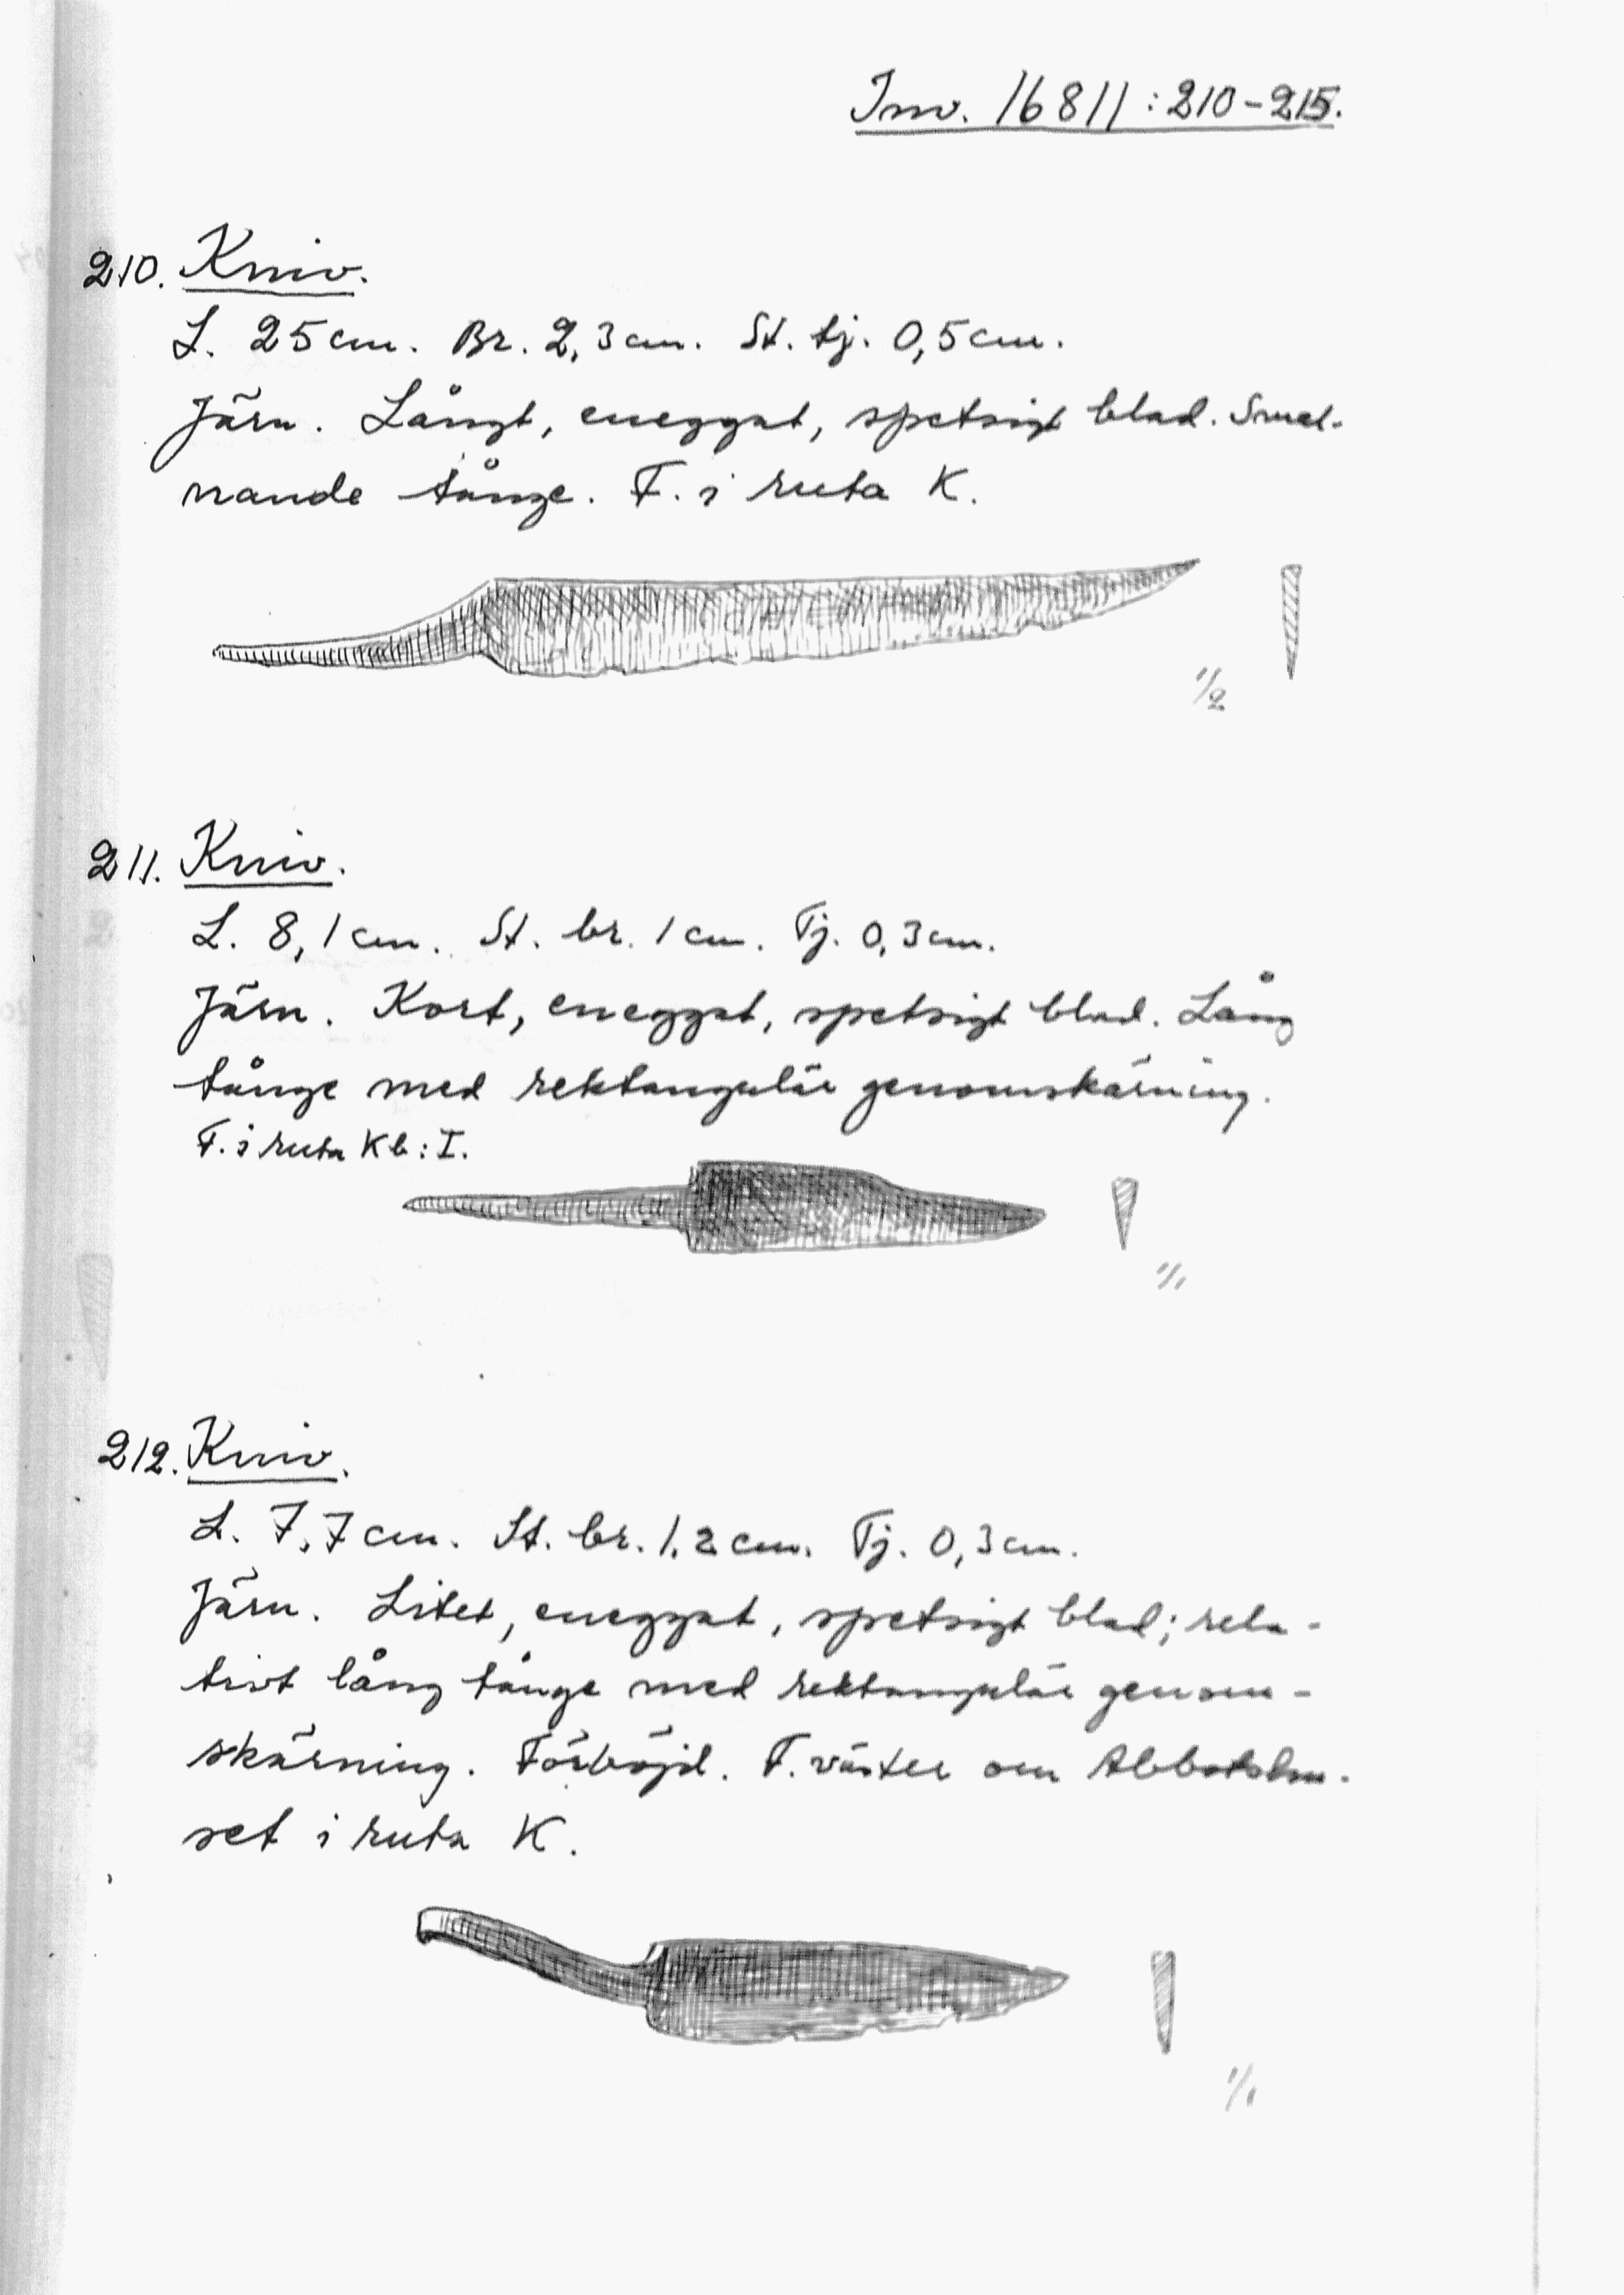 Inv. 16811:210-215.
210. Kniv.
L. 25cm. Br. 2,3cm. St. tj. 0,5cm.
Järn. Långt, eneggat, spetsigt blad. Smal-
nande tånge. F. i ruta K.
1/2
211. Kniv.
L. 8,1cm. St. br. 1cm. Tj. 0,3cm.
Järn. Kort, eneggat, spetsigt blad. Lång
tånge med rektangulär genomskärning.
F. i ruta Kb:I.
1/1
212. Kniv.
L. 7,7cm. St. br. 1,2cm. Tj. 0,3cm.
Järn. Litet, eneggat, spetsigt blad; rela-
tivt lång tånge med rektangulär genom-
skärning. Förböjd. F. väster om Abbotshu-
set i ruta K.
1/1